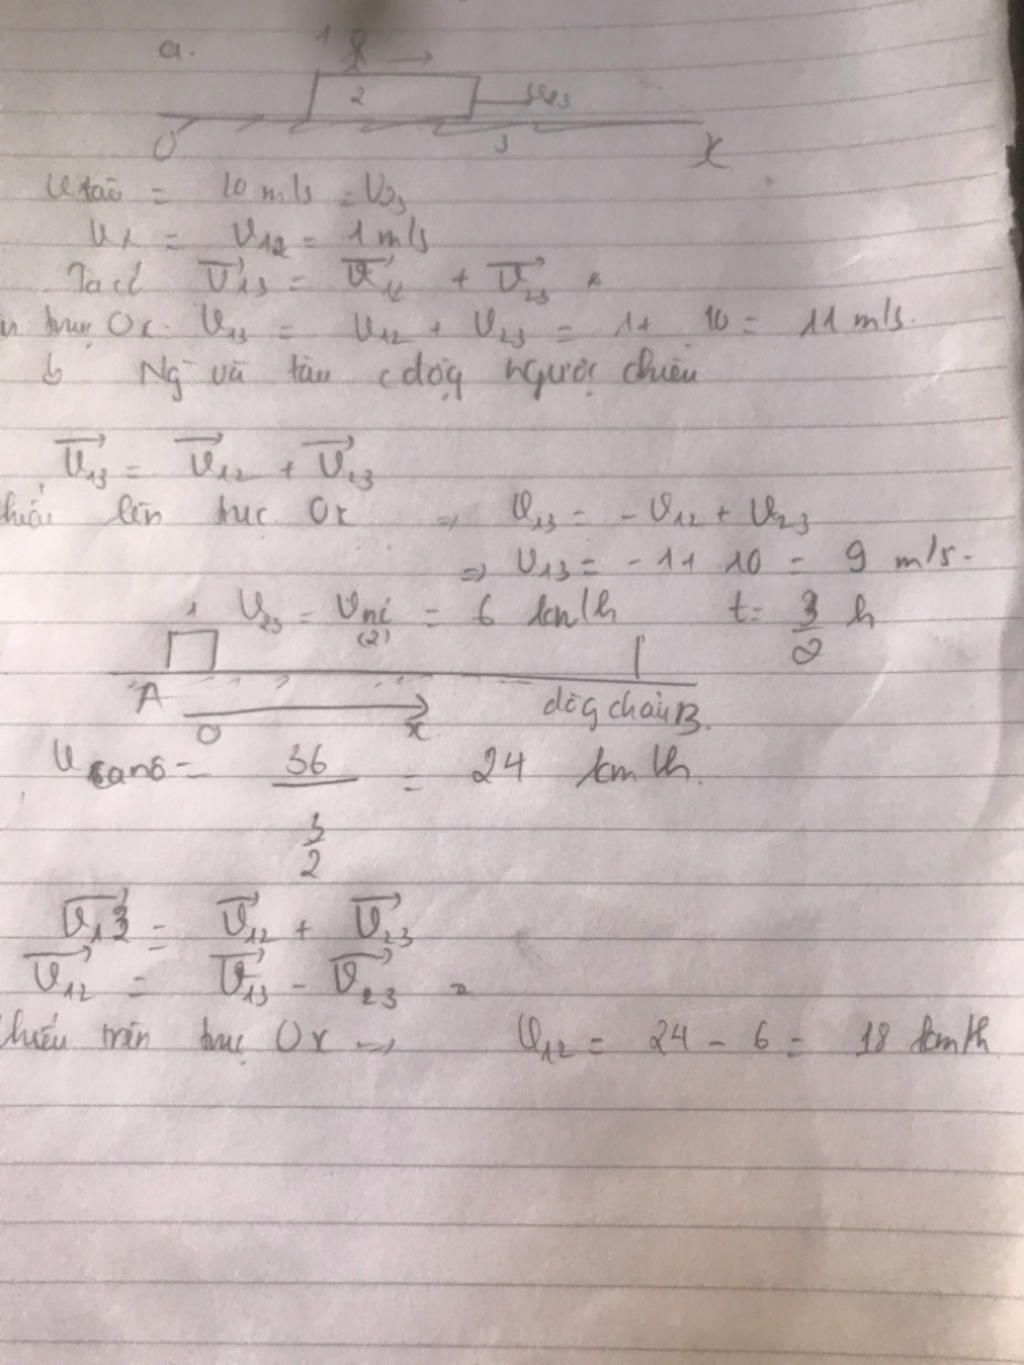 a.
1
2
O 3 x
tàu = 10 m/s = V23
V1 = V12 = 1 m/s
Ta có V⃗13 = V⃗12 + V⃗23
trục Ox. V13 = V12 + V23 = 1 + 10 = 11 m/s.
b Ng và tàu cđộg ngược chiều
V⃗13 = V⃗12 + V⃗23
chiếu lên trục Ox => V13 = -V12 + V23
=> V13 = -1 + 10 = 9 m/s.
1 V23 = = 6 km/h t = h
(2)
A dòg chảy B.
O x
V = 36/(3/2) = 24 km/h.
V⃗13 = V⃗12 + V⃗23
V⃗12 = V⃗13 - V⃗23
chiếu trên trục Ox => V12 = 24 - 6 = 18 km/h